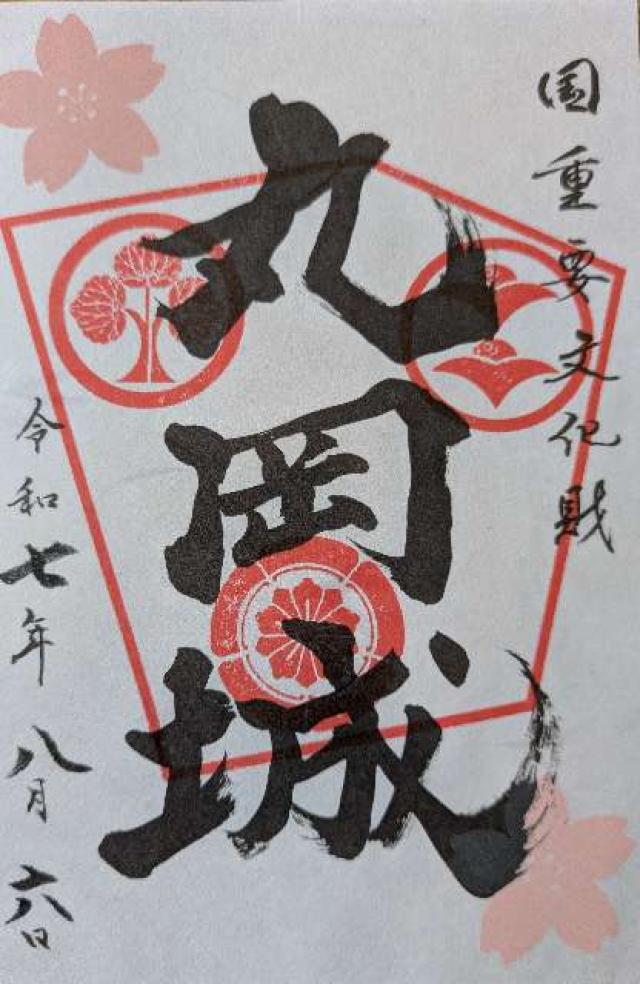 国重要文化財
丸岡城
令和七年八月六日